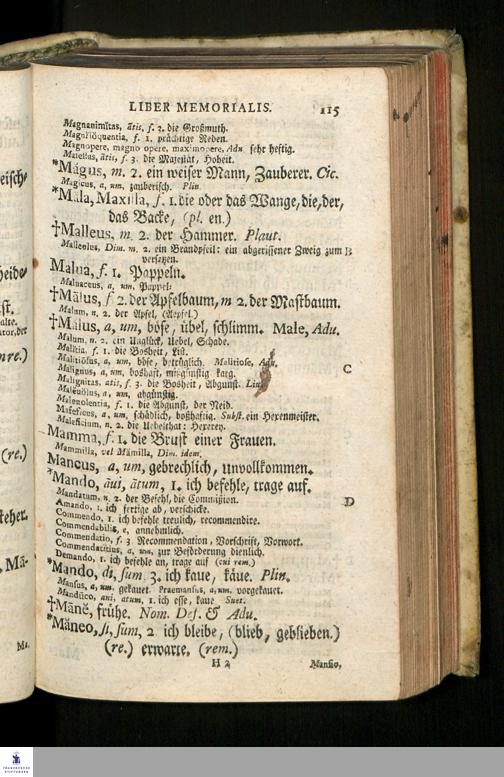 LIBER MEMORIALIS. 115
Magnanimitas, ātis, f. 3. die Großmuth.
Magniloquentia, f. 1. prächtige Reden.
Magnopere, magno opere, maximopere, Adu. sehr heftig.
Maiestas, ātis, f. 3. die Majestät, Hoheit.
*Măgus, m. 2. ein weiser Mann, Zauberer. Cic.
Magicus, a, um, zauberisch. Plin.
*Mala, Maxilla, f. 1. die oder das Wange, die, der,
das Backe, (pl. en.)
†Malleus, m. 2. der Hammer. Plaut.
Malleolus, Dim. m. 2. ein Brandpfeil: ein abgerissener Zweig zum B
versetzen.
Malua, f. 1. Pappeln.
Maluaceus, a, um, Pappel-
†Mālus, f. 2. der Apfelbaum, m 2. der Mastbaum.
Malum, n. 2. der Apfel, (Aepfel.)
†Mălus, a, um, böse, übel, schlimm. Male, Adu.
Malum, n. 2. ein Unglück, Uebel, Schade.
Malitia, f. 1. die Bosheit, List.
Malitiōsus, a, um, böse, betrüglich. Malitiose, Adu.
Malignus, a, um, boshaft, mißgünstig karg. C
Malignitas, atis, f. 3. die Bosheit, Abgunst. Liu.
Maleuŏlus, a, um, abgünstig.
Maleuolentia, f. 1. die Abgunst, der Neid.
Maleficus, a, um, schädlich, boßhaftig. Subst. ein Hexenmeister.
Maleficium, n. 2. die Uebelthat: Hexerey.
Mamma, f. 1. die Brust einer Frauen.
Mammilla, vel Mamilla, Dim. idem.
Mancus, a, um, gebrechlich, unvollkommen.
*Mando, āui, ātum, 1. ich befehle, trage auf.
Mandatum, n. 2. der Befehl, die Commißion. D
Amando, 1. ich fertige ab, verschicke.
Commendo, 1. ich befehle treulich, recommendire.
Commendabilis, e, annehmlich.
Commendatio, f. 3 Recommendation, Vorschrift, Vorwort.
Commendatitius, a, um, zur Beförderung dienlich.
Demando, 1. ich befehle an, trage auf (cui rem.)
*Mando, di, sum, 3. ich kaue, käue. Plin.
Mansus, a, um, gekauet. Praemansus, a, um, vorgekauet.
Manduco, aui, atum, 1. ich esse, kaue Suet.
†Mānĕ, frühe. Nom. Def. & Adu.
*Măneo, si, sum, 2 ich bleibe, (blieb, geblieben.)
(re.) erwarte, (rem.)
H 2 Mansio,